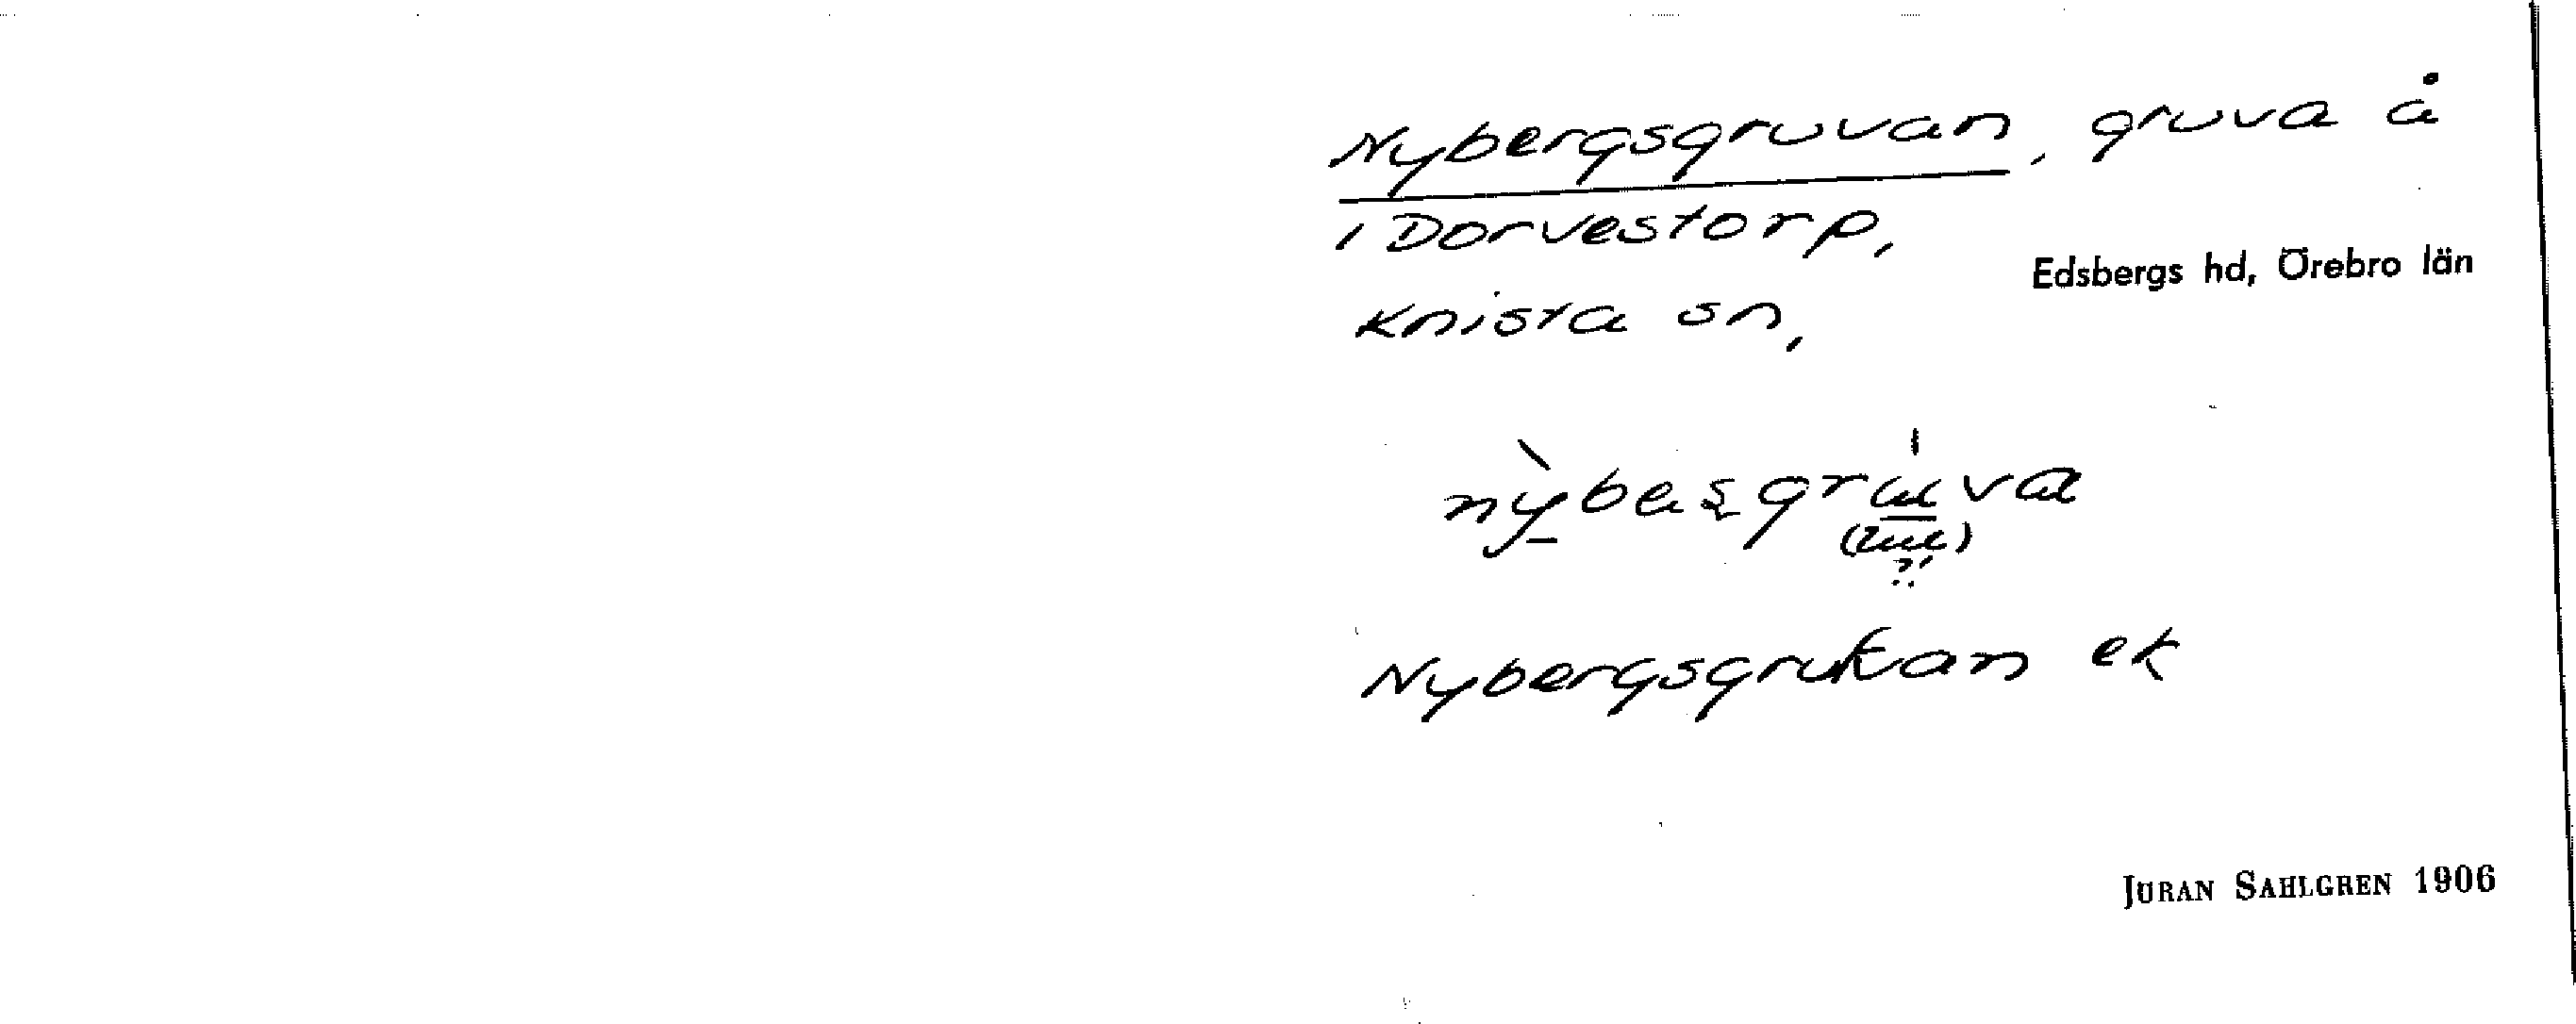 Nybergsgruvan, gruva å
i Dorvestorp,
Knista sn,
Edsbergs hd, Örebro län
Nybergsgrufvan ek
JÖRAN SAHLGREN 1906